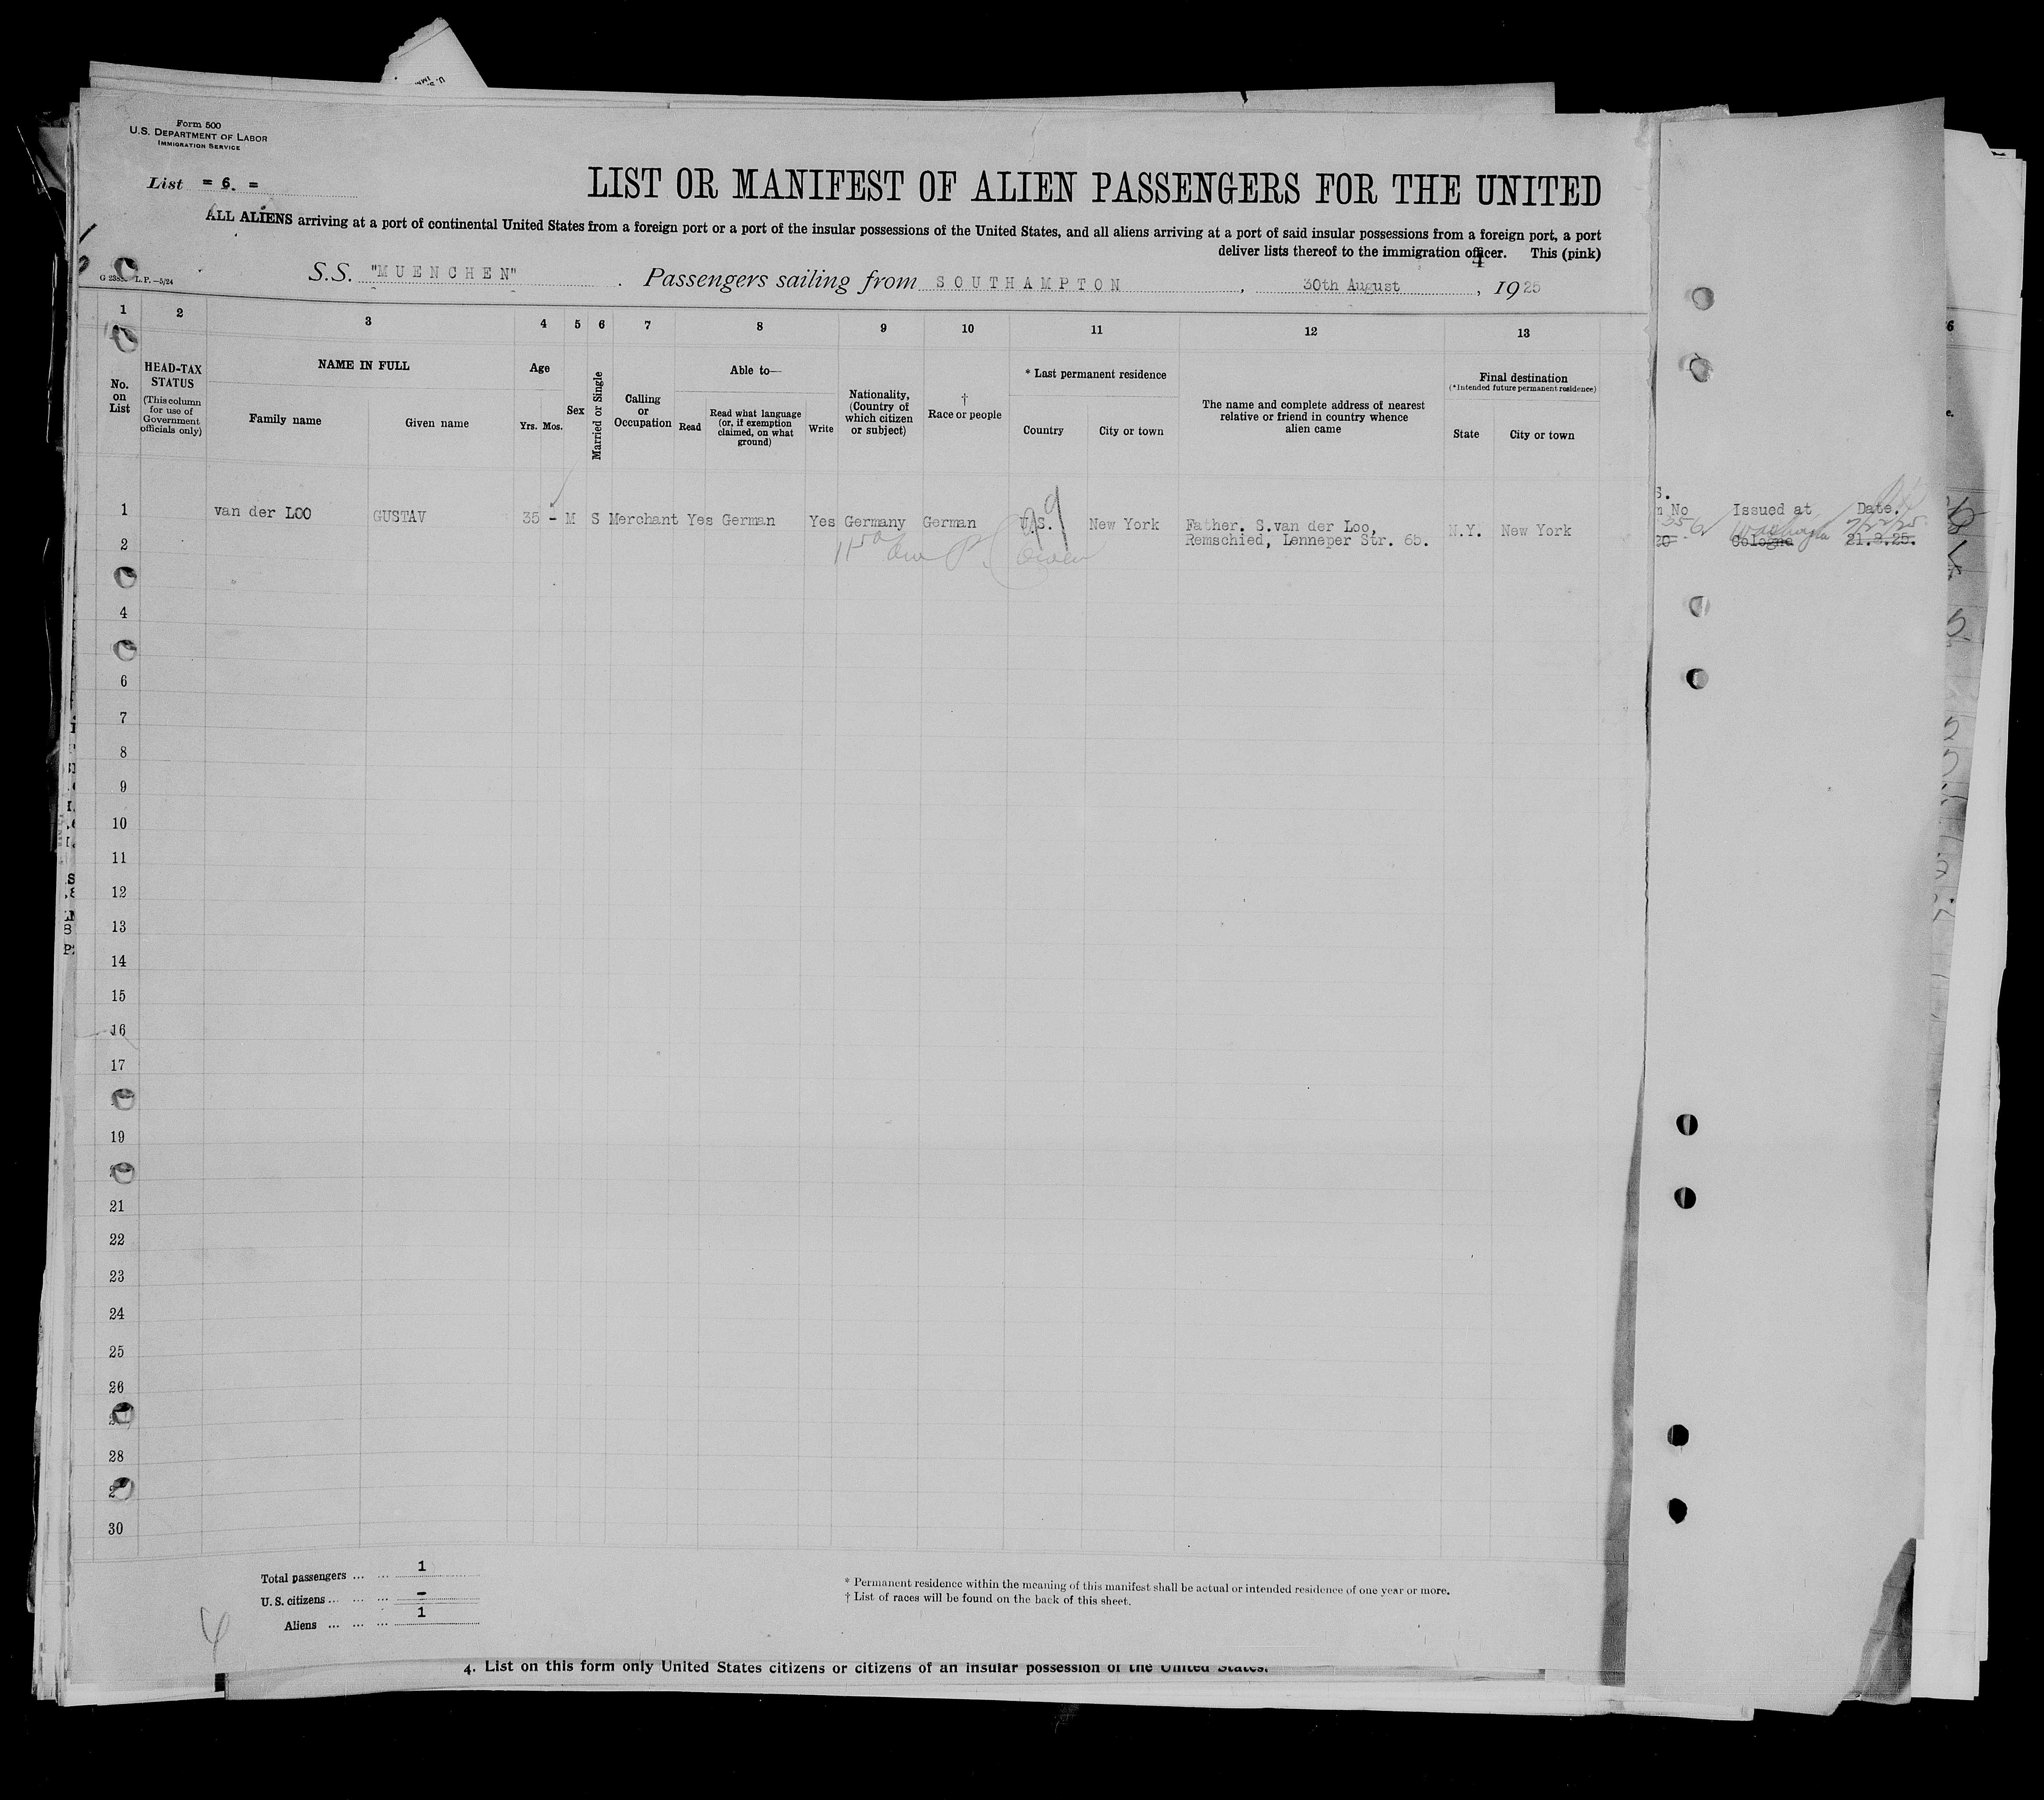 Form 500
U.S. DEPARTMENT OF LABOR
IMMIGRATION SERVICE
List = 6. =
LIST OR MANIFEST OF ALIEN PASSENGERS FOR THE UNITED
ALL ALIENS arriving at a port of continental United States from a foreign port or a port of the insular possessions of the United States, and all aliens arriving at a port of said insular possessions from a foreign port, a port
deliver lists thereof to the immigration officer. This (pink)
L. P.—5/24
S.S. "MUENCHEN" . Passengers sailing from SOUTHAMPTON , 30th August , 1925
1 2 3 4 5 6 7 8 9 10 11 12 13
No. on List
HEAD-TAX STATUS
(This column for use of Government officials only)
NAME IN FULL
Family name
Given name
Age
Yrs. Mos.
Sex
Married or Single
Calling or Occupation
Able to—
Read
Read what language (or, if exemption claimed, on what ground)
Write
Nationality, (Country of which citizen or subject)
† Race or people
* Last permanent residence
Country
City or town
The name and complete address of nearest relative or friend in country whence alien came
Final destination
(*Intended future permanent residence)
State
City or town
1 van der LOO GUSTAV 35 - M S Merchant Yes German Yes Germany German U.S. New York Father. S.van der Loo, N.Y. New York
Remschied, Lenneper Str. 65.
No Issued at Date.
Cologne 21.8.25.
2
4
6
7
8
9
10
11
12
13
14
15
16
17
19
21
22
23
24
25
26
28
30
Total passengers ... ... 1
U.S. citizens ... ... ... -
Aliens ... ... ... 1
* Permanent residence within the meaning of this manifest shall be actual or intended residence of one year or more.
† List of races will be found on the back of this sheet.
4. List on this form only United States citizens or citizens of an insular possession of the United States.